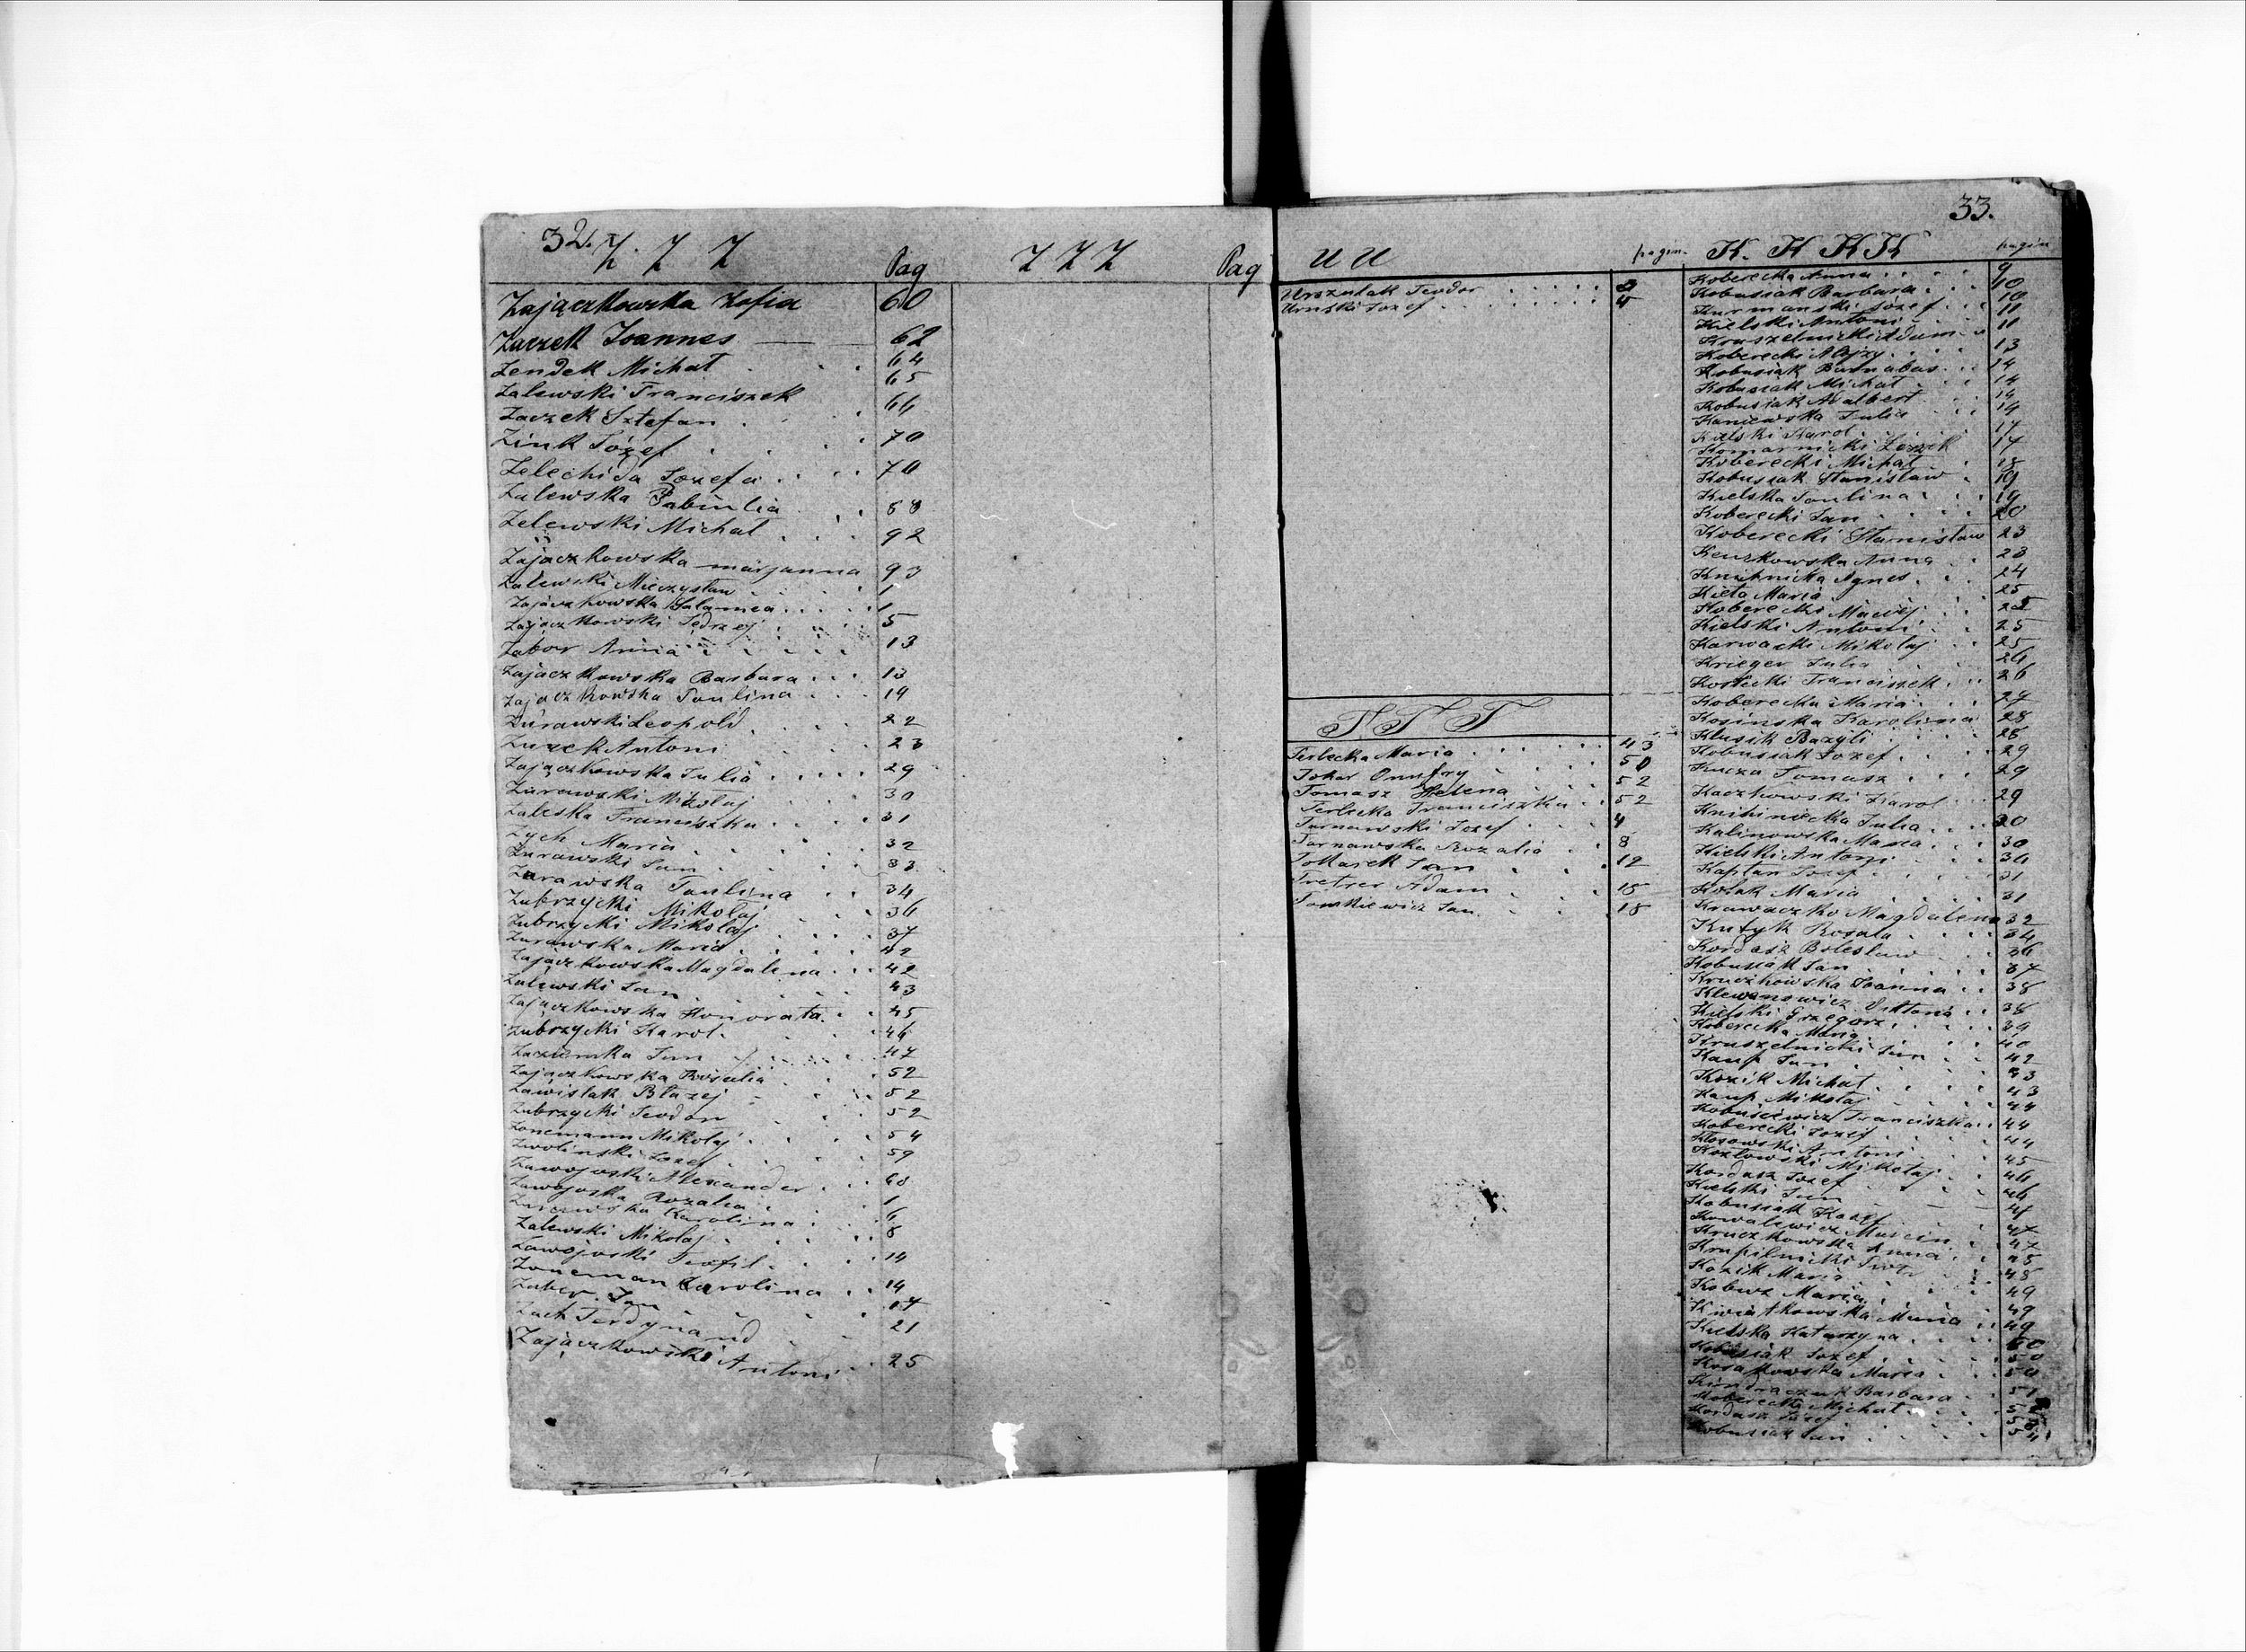 32.
Z. Z Z
Pag
Zajączkowska Zofia 60
Zaczek Joannes 62
Zendek Michał 64
Zalewski Franciszek 65
Zaczek Sztefan 66
Zink Józef 70
Zelechida Jozefa 70
Zalewska Pabiulia 88
Zelewski Michał 92
Zajaczkowska maryanna 93
Zalewski Mieczysław 1
Zajaczkowska Salamea 1
Zajaczkowski Jędrzej 5
Zabor Anna 13
Zajaczkowska Barbara 13
Zajaczkowska Paulina 14
Żurawski Leopold 22
Zuzek Antoni 23
Zajączkowska Julia 29
Zurawski Mikołaj 30
Zaleska Franciszka 31
Zych Maria 32
Zurawski Jan 33
Zurawska Paulina 34
Zubrzycki Mikołaj 36
Zubrzycki Mikołaj 37
Zurawska Maria 42
Zajączkowska Magdalena 42
Zalewski Jan 43
Zajączkowska Honorata 45
Zubrzycki Karol 46
Jan 47
Zajaczkowska Rosalia 52
Zawislak Błazej 52
Zubrzycki Teodor 52
Zonemann Mikołaj 54
Zwolinski Jozef 59
Zawojoski Alexander 60
Zawojoska Rozalia 1
Zurawska Karolina 6
Zalewski Mikołaj 8
Zawojoski Teofil 14
Zoneman Carolina 14
Zuber Jan 17
Zach Ferdynand 21
Zajączkowski Antoni 25
Z Z Z
Pag
U U
pagin.
Urszulak Teodor 2
Urnski Jozef 4
T T T
Terlecka Maria 43
Tokar Onufry 50
Tomasz Helena 52
Terlecka Franciszka 52
Tarnawski Jozef 4
Tarnawska Rozalia 8
Tokarek Jan 12
Tretrer Adam 15
Tomkiewicz Jan 18
33.
K. K K K
pagin
Koberecka Anna 9
Kobusiak Barbara 10
Kurmanski Józef 10
Kielski Antoni 11
Kruszelnicki Adam 11
Koberecki Alojzy 13
Kobusiak Barnabas 14
Kobusiak Michał 14
Kobusiak Adalbert 14
Kaniewska Julia 14
Kielski Karol 17
Komarnicki Leszek 17
Koberecki Michał 18
Kobusiak Stanisław 19
Kielska Paulina 19
Koberecki Jan 20
Koberecki Stanisław 23
Anna 23
Knihnicka Agnes 24
Kieta Maria 25
Koberecki Maciej 25
Kielski Antoni 25
Karwacki Mikołaj 25
Krieger Julia 26
Kostecki Franciszek 26
Koberecka Maria 27
Kosinska Karolina 28
Klusik Bazyli 28
Kobusiak Jozef 29
Kucza Tomasz 29
Kaczkowski Karol 29
Knihinicka Julia 30
Kalinowska Maria 30
Kielski Antoni 30
Kapłan Jozef 31
Kozak Maria 31
Krawaczko Magdalena 32
Kutyk Rosala 34
Kordasz Bolesław 36
Kobusiak Jan 37
Kruczkowska Joanna 38
Viktoria 38
Kielski Grzegorz 39
Koberecka Maria 40
Kruszelnicki Jan 42
Kaup Jan 43
Kozik Michał 43
Kaup Mikołaj 44
Kobusiewicz Franciszka 44
Koberecki Jozef 44
Kłosowski Antoni 45
Kozłowski Mikołaj 46
Kordasz Jozef 46
Kielski Jan 47
Kobusiak Jozef 47
Kowalewicz Marcin 47
Kruczkowska Anna 48
Krupilnicki Piotr 48
Kozik Maria 49
Kobusz Maria 49
Kwiatkowska Maria 49
Kielska Katarzyna 50
Kobusiak Jozef 50
Kosakowska Maria 50
Kindraczuk Barbara 51
Koberecki Michał 52
Kordasz Jozef 53
Kobusiak Jan 54